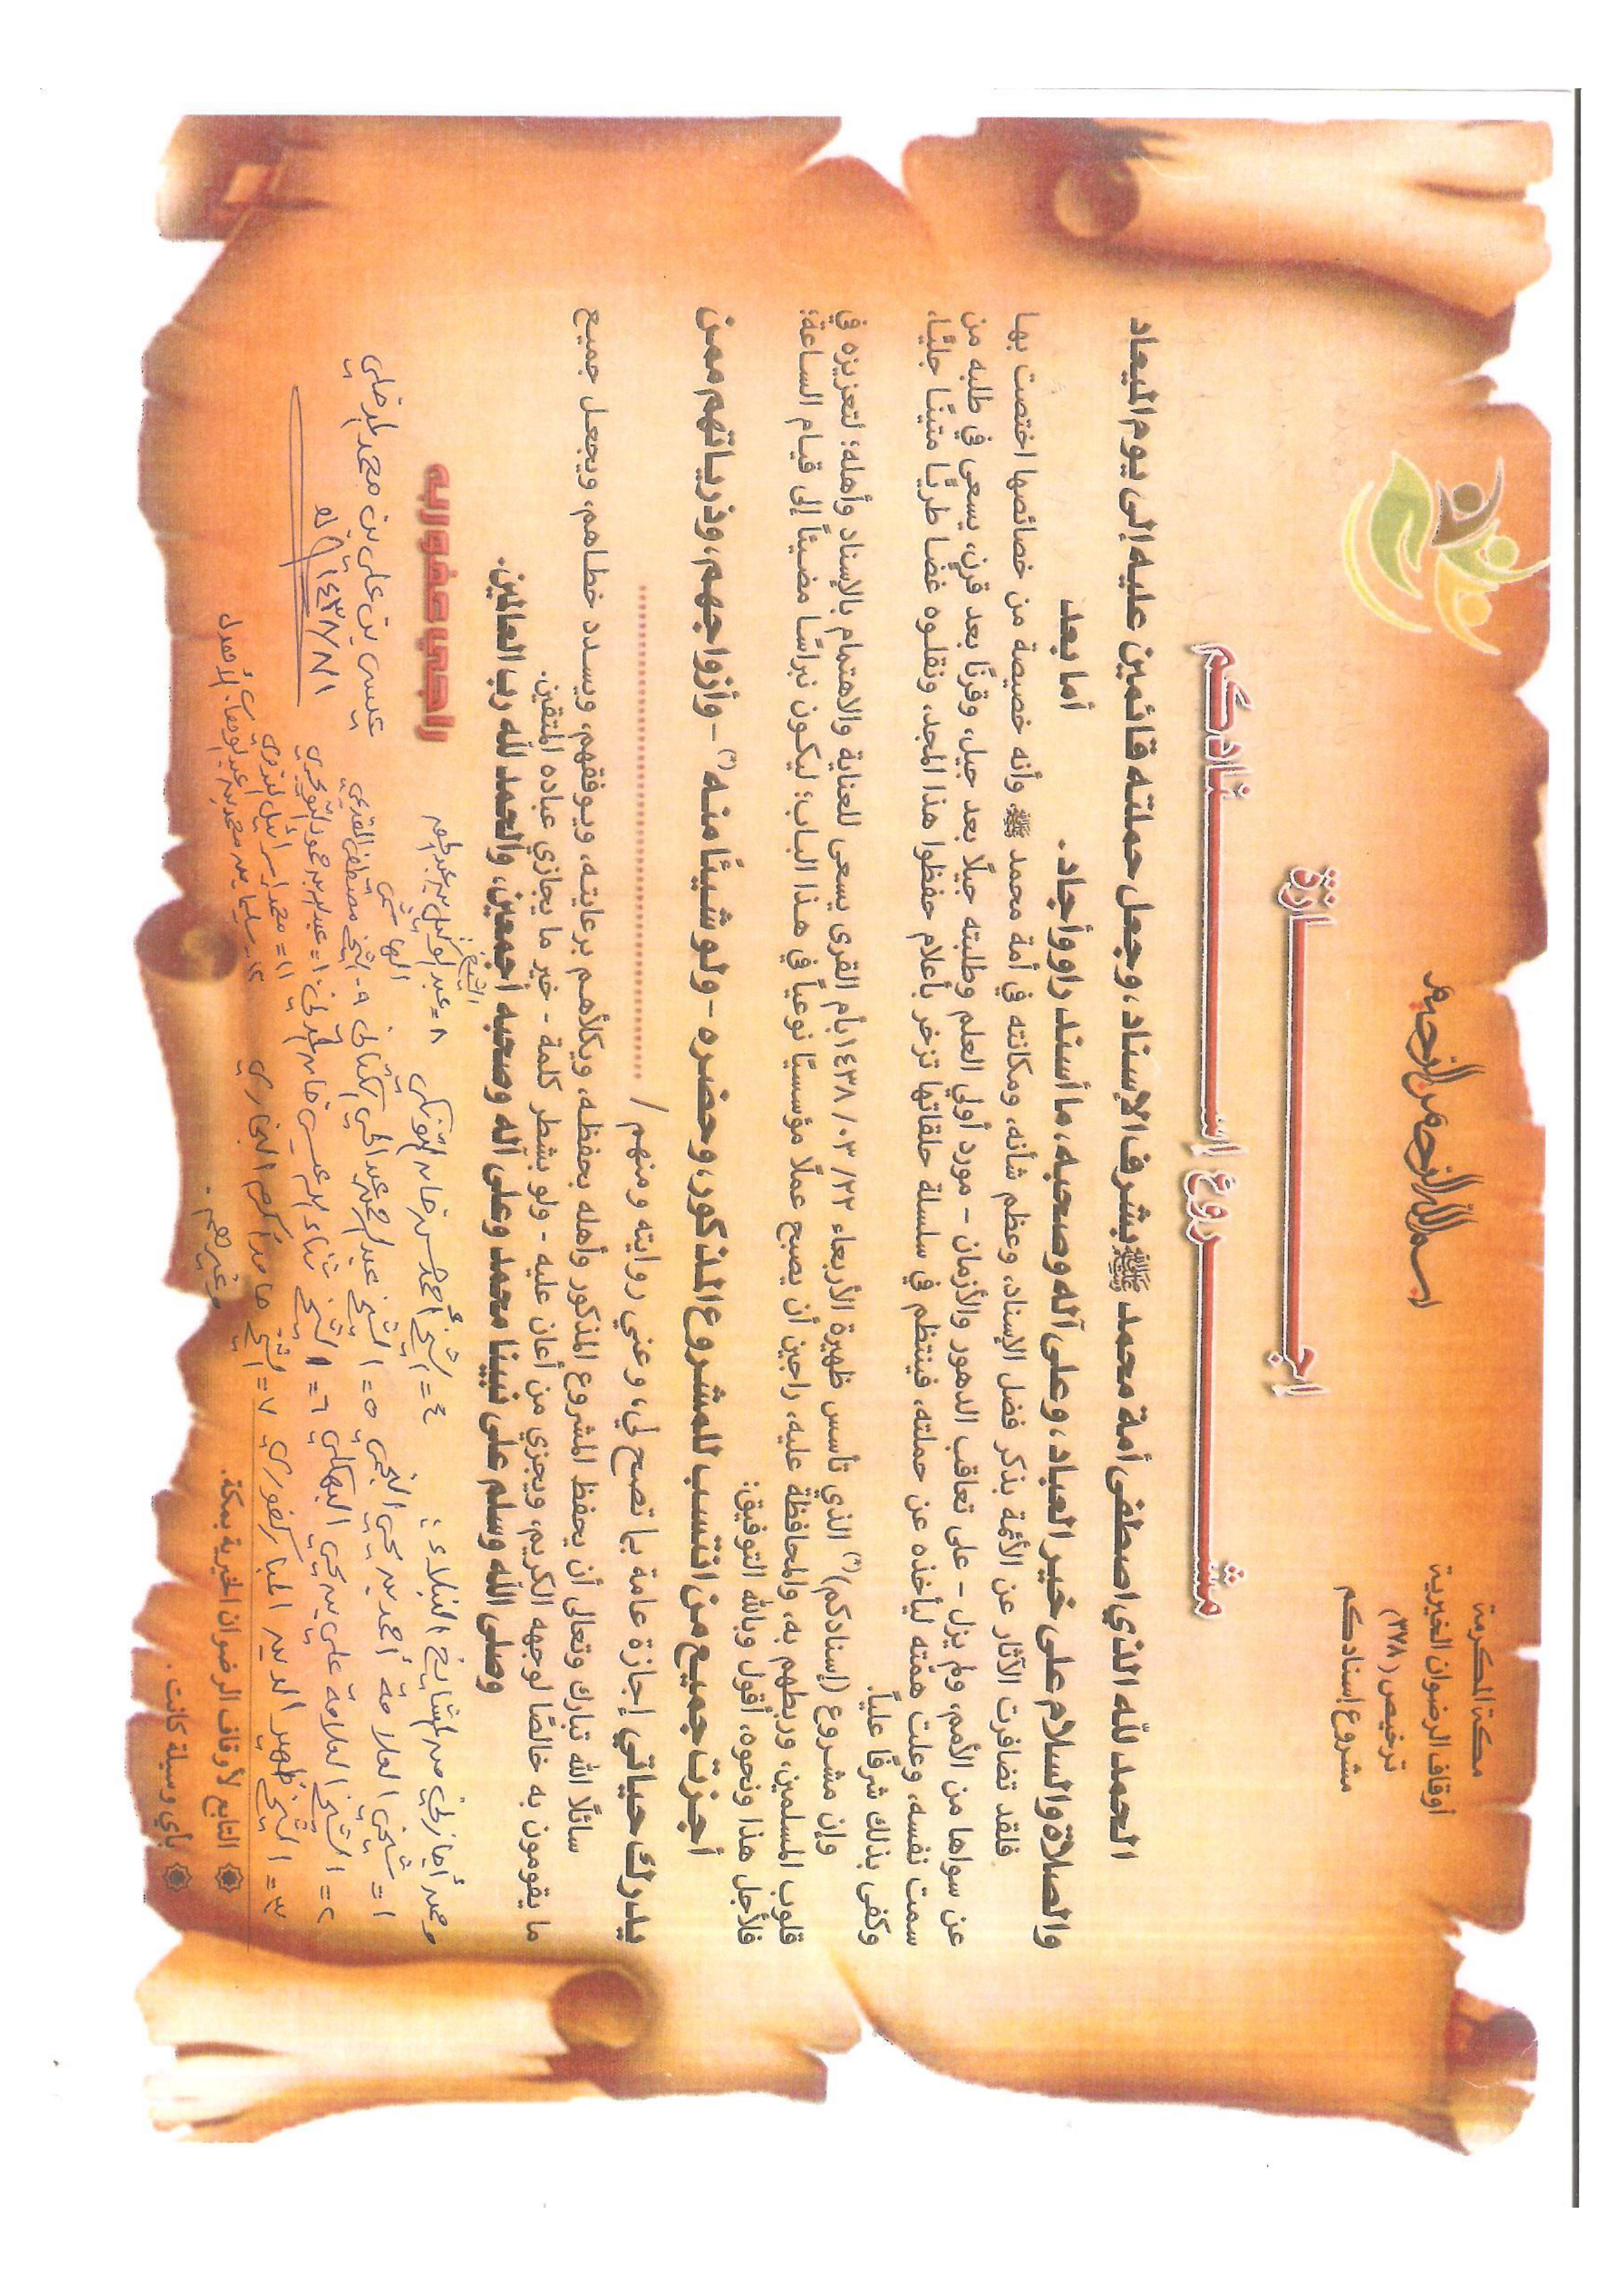 مكة المكرمة
أوقاف الرضوان الخيرية
ترخيص (٣٧٨)
مشروع إسنادكم
بسم الله الرحمن الرحيم
اجـــازة
مشـــروع اسـنادكم
الحمد لله الذي اصطفى أمة محمد ﷺ بشرف الإسناد، وجعل حملته قائمين عليه إلى يوم الميعاد
والصلاة والسلام على خير العباد، وعلى آله وصحبه، ما أسند راو وأجاد. أما بعد
فلقد تضافرت الآثار عن الأئمة بذكر فضل الإسناد، وعظم شأنه، ومكانته في أمة محمد ﷺ وأنه خصيصة من خصائصها اختصت بها
عن سواها من الأمم، ولم يزل - على تعاقب الدهور والأزمان - مورد أولي العلم وطلبته جيلًا بعد جيل، وقرنًا بعد قرن، يسعى في طلبه من
سمت نفسه، وعلت همته ليأخذه عن حملته، فينتظم في سلسلة حلقاتها تزخر بأعلام حفظوا هذا المجد، ونقلوه غضا طريًّا متينًا جليًّا،
وكفى بذلك شرفًا عليًّا.
وإن مشروع (إسنادكم)(*) الذي تأسس ظهيرة الأربعاء ٢٢/ ٠٣/ ١٤٣٨ بأم القرى يسعى للعناية والاهتمام بالإسناد وأهله؛ لتعزيزه في
قلوب المسلمين، وربطهم به، والمحافظة عليه، راجين أن يصبح عملًا مؤسسيًا نوعياً في هذا الباب؛ ليكون نبراسًا مضيئاً إلى قيام الساعة؛
فلأجل هذا ونحوه، أقول وبالله التوفيق:
أجزت جميع من انتسب للمشروع المذكور، وحضره - ولو شيئًا منه (*) - وأزواجهم، وذرياتهم ممن
يدرك حياتي إجازة عامة بما تصح لي، وعني روايته ومنهم / ....................
سائلًا الله تبارك وتعالى أن يحفظ المشروع المذكور وأهله بحفظه، ويكلأهم برعايته، ويوفقهم، ويسدد خطاهم، ويجعل جميع
ما يقومون به خالصًا لوجهه الكريم، ويجزي من أعان عليه - ولو بشطر كلمة - خير ما يجازي عباده المتقين.
وصلى الله وسلم على نبينا محمد وعلى آله وصحبه أجمعين، والحمد لله رب العالمين.
راجي عفو ربه
وممن أجازني من المشايخ النبلاء:
١= شيخي العلامة أحمد بن يحيى النجمي
٢= الشيخ العلامة علي بن يحيى البهكلي
٣= الشيخ ظهير الدين المباركفوري
٤= الشيخ أحمد حسن خان التونكي
٥= الشيخ عبد الرحمن عبد الحي الكتاني
٦= الشيخ ثناء الله عيسى خان المدني
٧= الشيخ حامد أكرم البخاري
٨= الشيخ عبد الوكيل بن عبد الحق الهاشمي
٩- الشيخ مصطفى القديمي
١٠= عبد الله بن حمود التويجري
١١= محمد إسرائيل الندوي
١٢- سليمان بن محمد بن عبد الوهاب الأهدل
وغيرهم.
عيسى بن علي بن محمد
١٤٣٨/٨/١ هـ
التابع لأوقاف الرضوان الخيرية بمكة.
بأي وسيلة كانت.